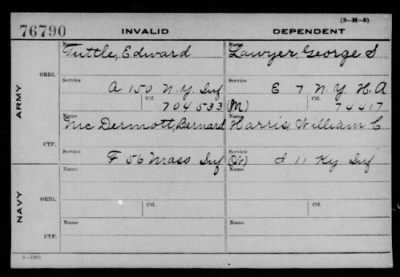 (3-H-3)
76790 INVALID DEPENDENT
Name Name
Tuttle, Edward Lawyer, George S
ORIG.
Service Service
A 150 N.Y. Inf E 7 N Y H.A
Ctf. Ctf.
704533 (M) 74417
ARMY
Name Name
McDermott, Bernard Harris, William C
CTF.
Service Service
F 56 Mass Inf (W) d 11 Ky Inf
Name Name
ORIG.
Service Service
Ctf. Ctf.
NAVY
Name Name
CTF.